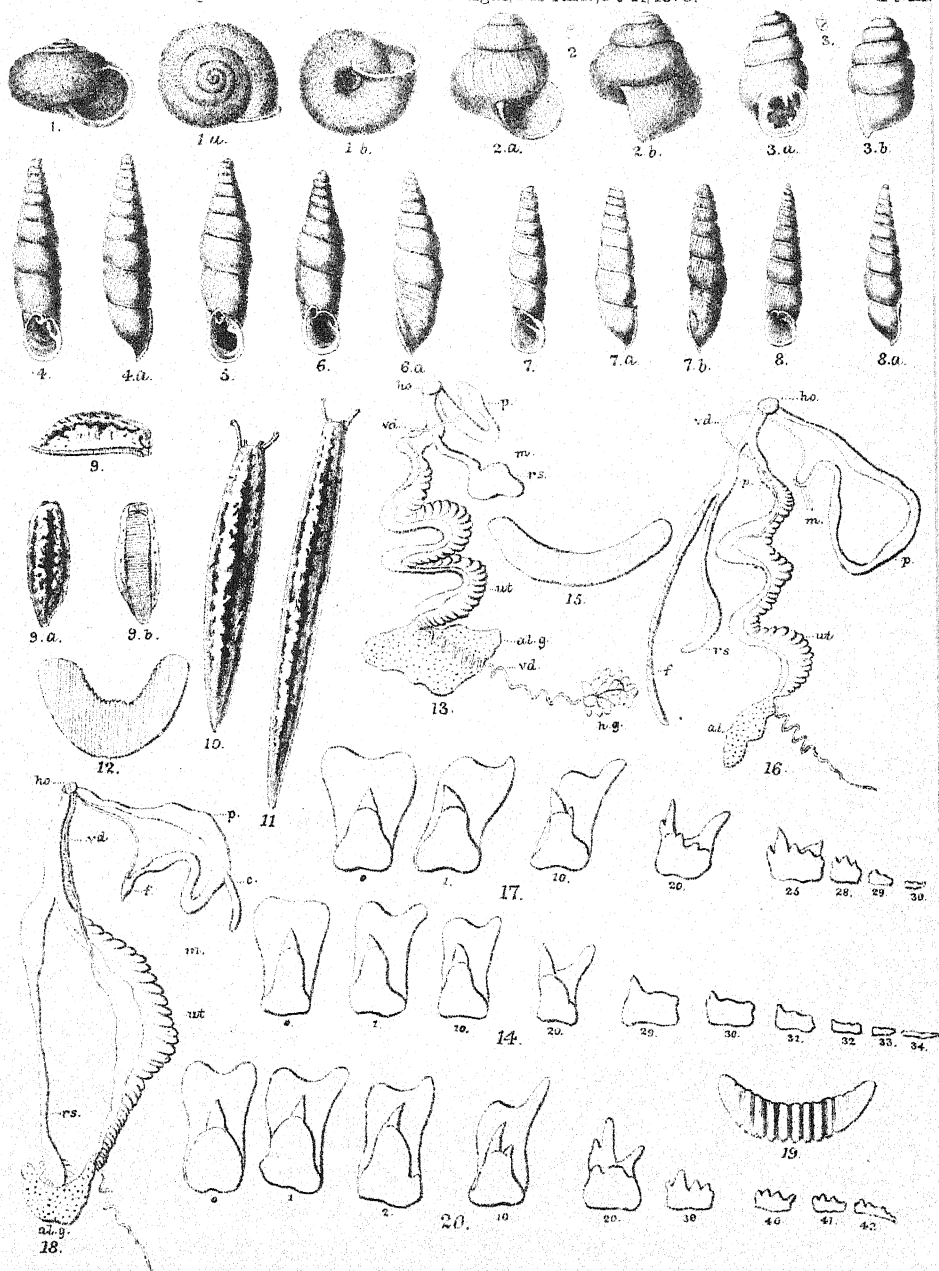 1.
1 a.
1 b.
2
2.a.
2 b.
3.
3.a.
3.b.
4.
4.a.
5.
6.
6.a
7.
7.a
7.b.
8.
8.a.
9.
9.a.
9.b.
10.
11
12.
ho.
p.
vd.
m.
rs.
ut
al.g.
vd.
h.g.
13.
15.
ho.
vd.
p.
m.
p.
rs
f
ut
al.
16.
ho.
vd
p.
f
c.
m.
ut
rs.
al.g.
18.
0
1.
10.
20.
25
28.
29.
30.
17.
0.
1
10.
20.
29.
30.
31.
32
33.
34.
14.
19.
0
1
2.
10
20.
30
40.
41.
42.
20.